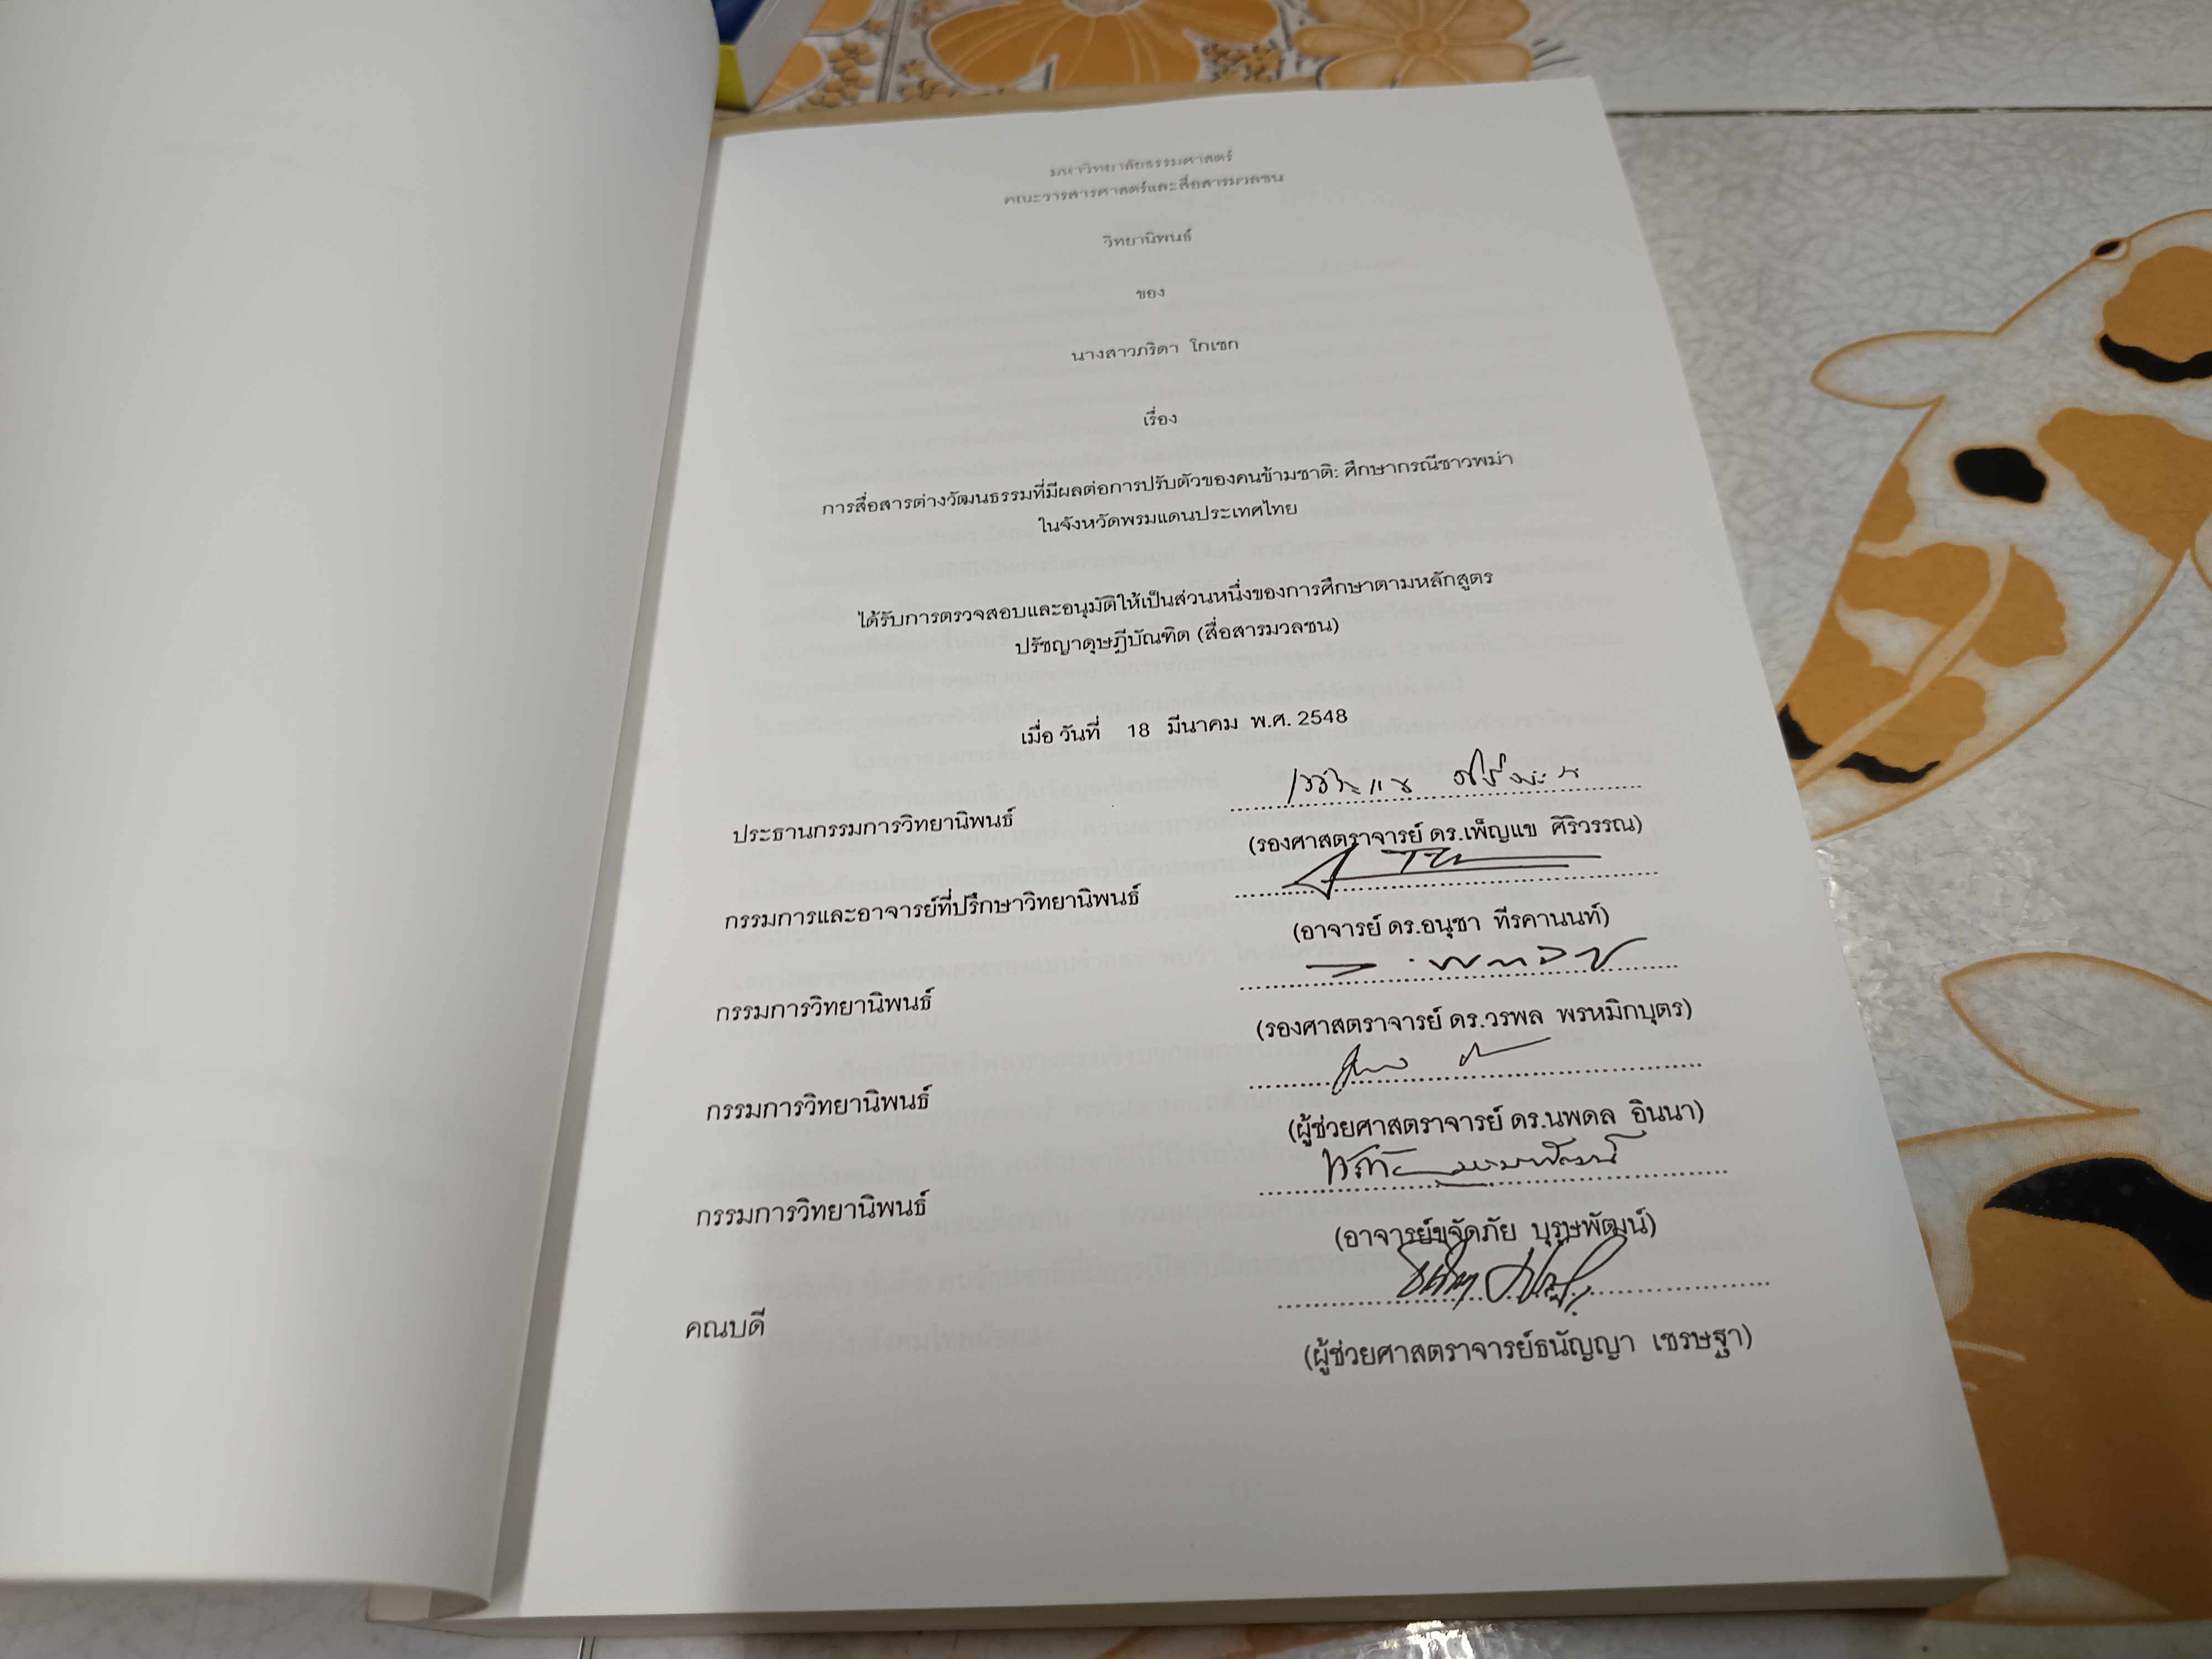 มหาวิทยาลัยธรรมศาสตร์
คณะวารสารศาสตร์และสื่อสารมวลชน
วิทยานิพนธ์
ของ
นางสาวภริดา โกเชก
เรื่อง
การสื่อสารต่างวัฒนธรรมที่มีผลต่อการปรับตัวของคนข้ามชาติ: ศึกษากรณีชาวพม่า
ในจังหวัดพรมแดนประเทศไทย
ได้รับการตรวจสอบและอนุมัติให้เป็นส่วนหนึ่งของการศึกษาตามหลักสูตร
ปรัชญาดุษฎีบัณฑิต (สื่อสารมวลชน)
เมื่อ วันที่ 18 มีนาคม พ.ศ. 2548
ประธานกรรมการวิทยานิพนธ์
(รองศาสตราจารย์ ดร.เพ็ญแข ศิริวรรณ)
กรรมการและอาจารย์ที่ปรึกษาวิทยานิพนธ์
(อาจารย์ ดร.อนุชา ทีรคานนท์)
กรรมการวิทยานิพนธ์
(รองศาสตราจารย์ ดร.วรพล พรหมิกบุตร)
กรรมการวิทยานิพนธ์
(ผู้ช่วยศาสตราจารย์ ดร.นพดล อินนา)
กรรมการวิทยานิพนธ์
(อาจารย์ขจัดภัย บุรุษพัฒน์)
คณบดี
(ผู้ช่วยศาสตราจารย์ธนัญญา เชรษฐา)